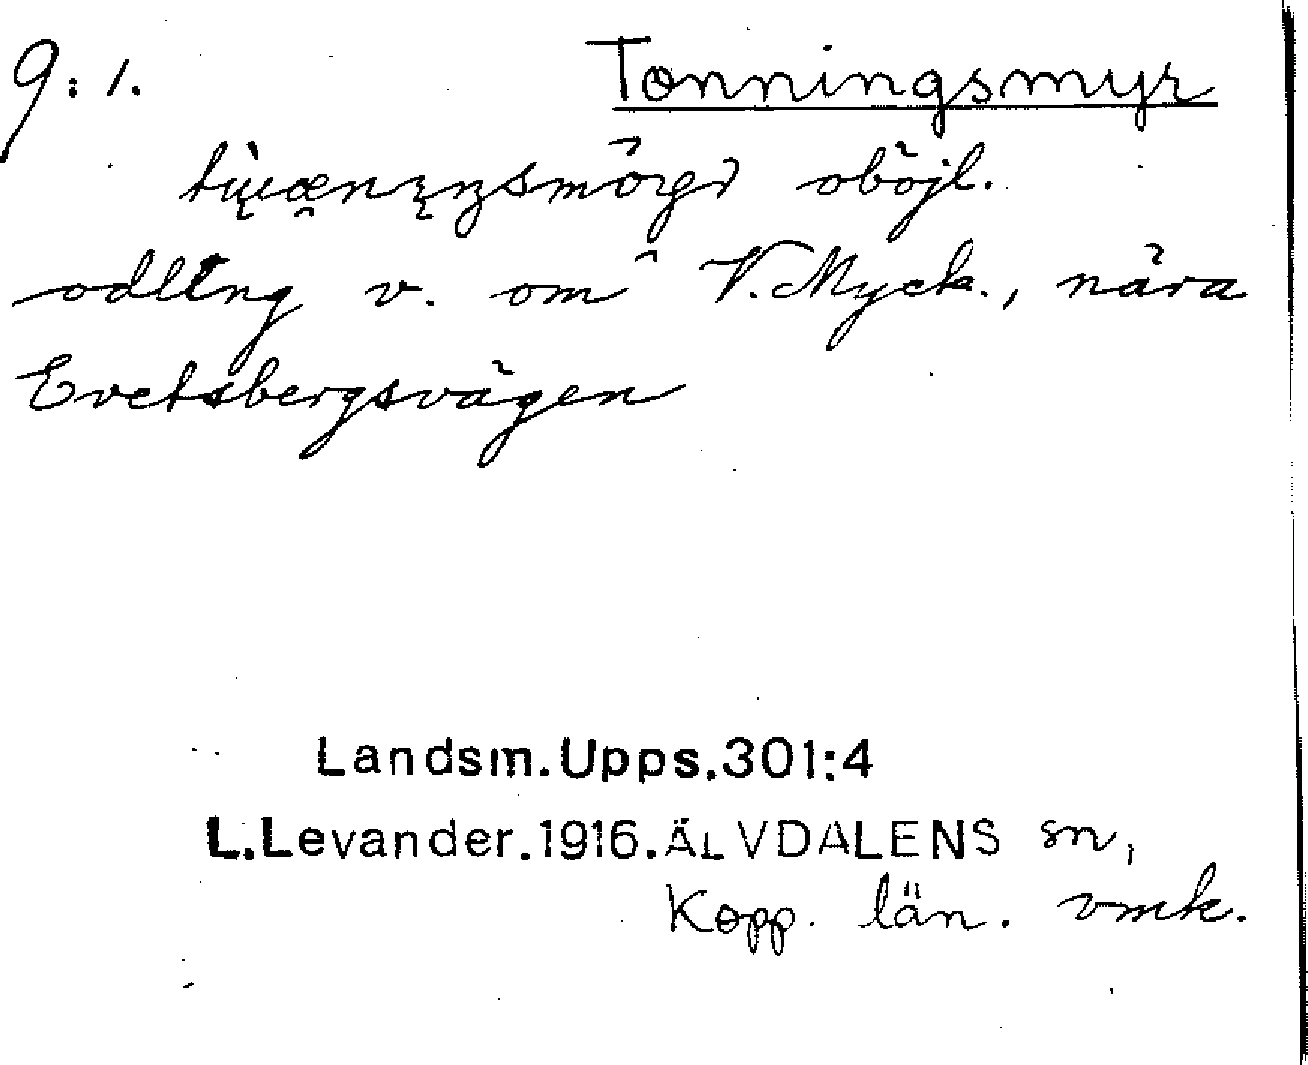 9:1. Tonningsmyr
oböjl.
odling v. om V. Myck., nära
Evetsbergsvägen
Landsm.Upps.301:4
L.Levander.1916.ÄLVDALENS sn,
Kopp. län. vmk.